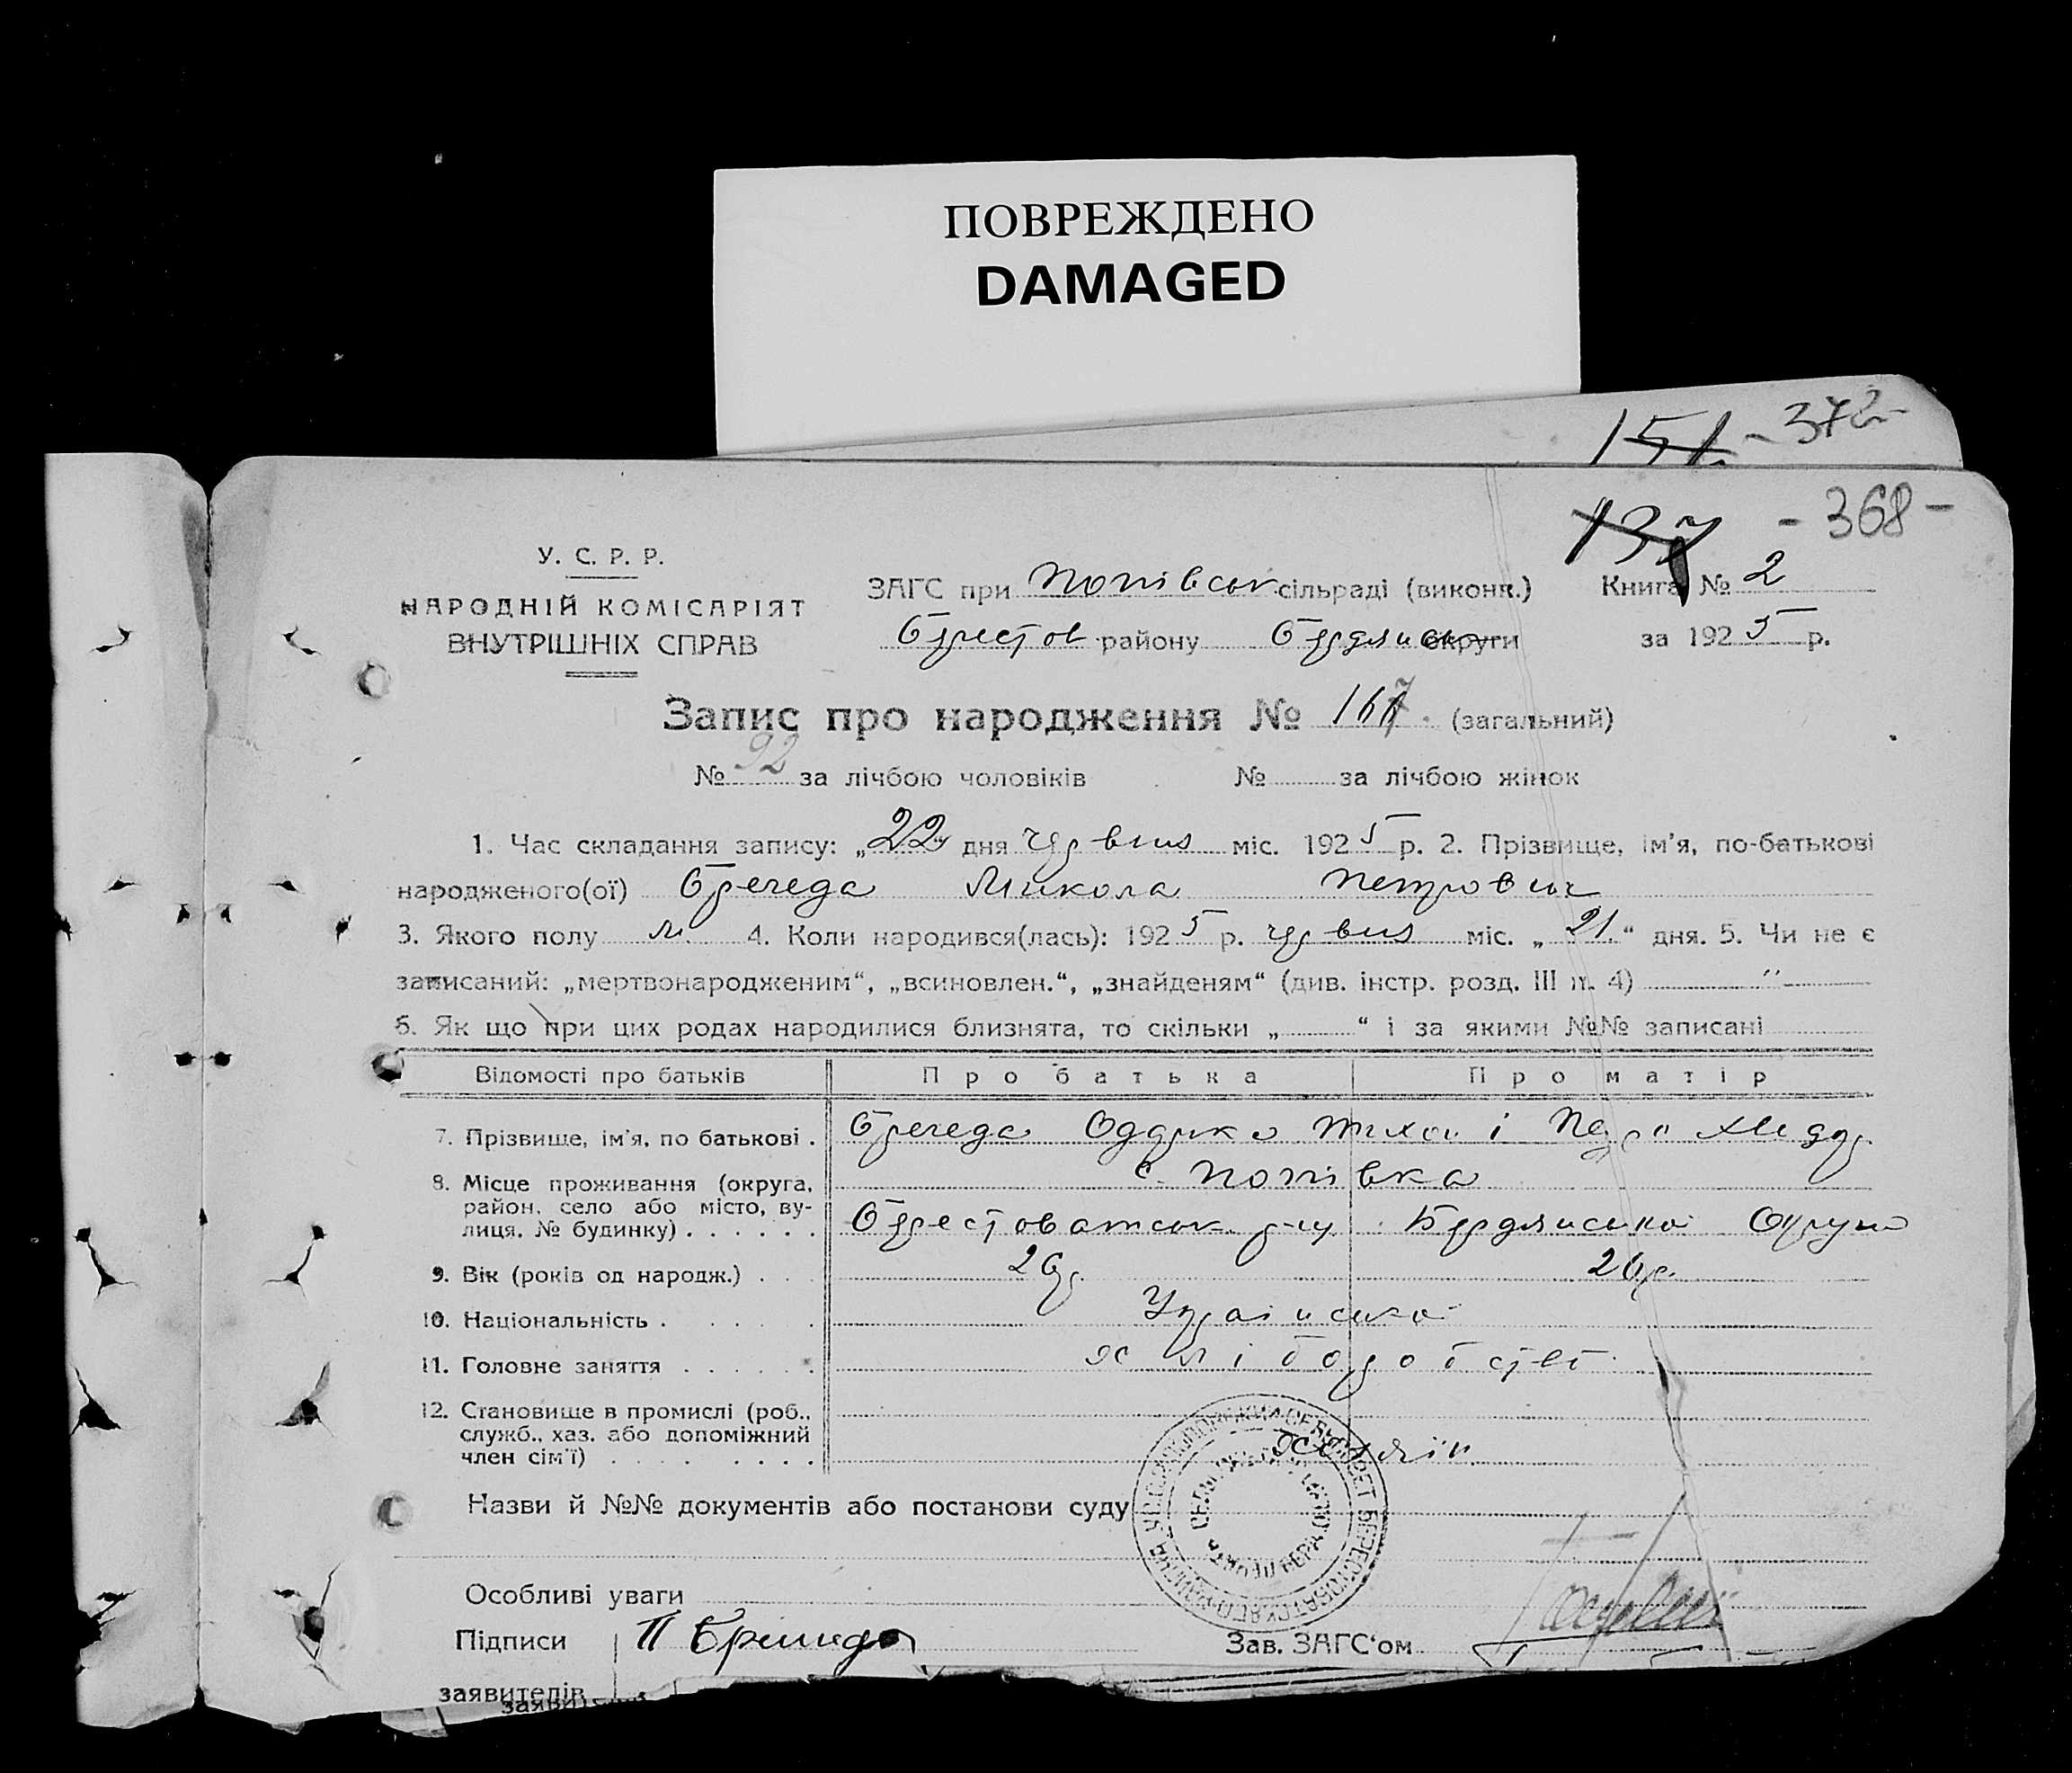 ПОВРЕЖДЕНО
DAMAGED
151 - 372 -
137 - 368 -
У. С. Р. Р.
НАРОДНІЙ КОМІСАРІЯТ
ВНУТРІШНІХ СПРАВ
ЗАГС при Попівськ сільраді (виконк.)
Берестов району Бердянськ округи
Книга № 2
за 1925 р.
Запис про народження № 167. (загальний)
№ 92 за лічбою чоловіків № за лічбою жінок
1. Час складання запису: „22" дня червня міс. 1925 р. 2. Прізвище, ім'я, по-батькові
народженого(ої) Микола Петрович
3. Якого полу м. 4. Коли народився(лась): 1925 р. червня міс. „21." дня. 5. Чи не є
записаний: „мертвонародженим", „всиновлен.", „знайденям" (див. інстр. розд. III п. 4) "
6. Як що при цих родах народилися близнята, то скільки „ " і за якими №№ записані
Відомості про батьків Про батька Про матір
7. Прізвище, ім'я, по батькові .
8. Місце проживання (округа, район, село або місто, вулиця, № будинку) . . . . . . с. Попівка
Берестоватськ р-ну Бердянської Округи
9. Вік (років од народж.) . . 26р.
10. Національність . . . . . Українська
11. Головне заняття . . . . . хліборобств
12. Становище в промислі (роб.,
служб., хаз. або допоміжний
член сім'ї) . . . . . . . . .
Назви й №№ документів або постанови суду
Особливі уваги
Підписи П
заявителів
Зав. ЗАГС'ом